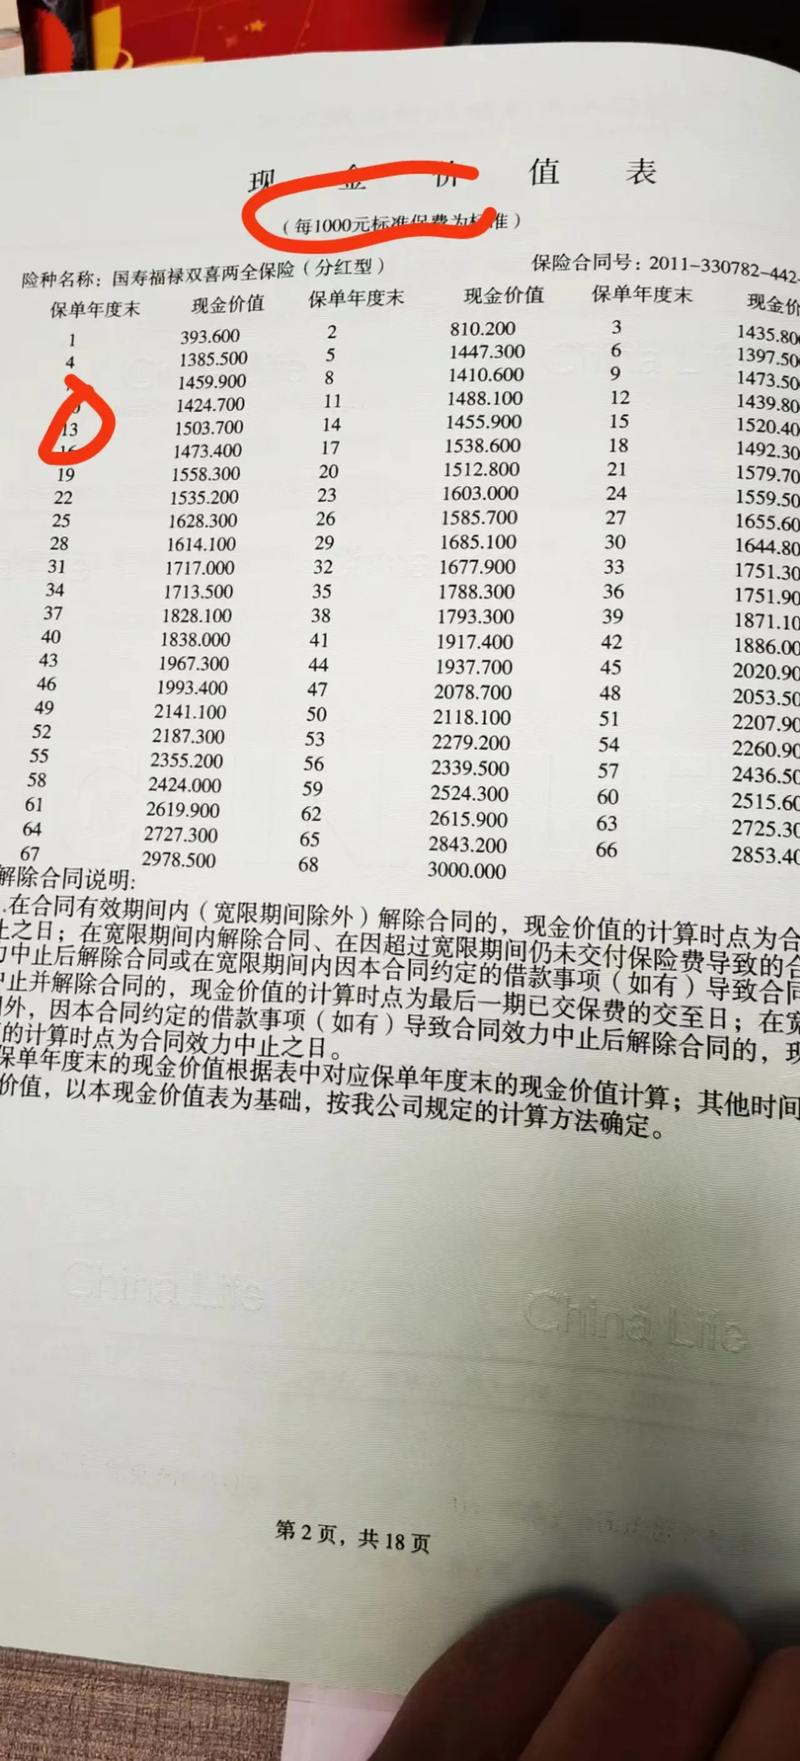 现金价值表
（每1000元标准保费为标准）
险种名称：国寿福禄双喜两全保险（分红型） 保险合同号：2011-330782-442-
保单年度末 现金价值 保单年度末 现金价值 保单年度末 现金价
1 393.600 2 810.200 3 1435.80
4 1385.500 5 1447.300 6 1397.50
1459.900 8 1410.600 9 1473.50
1424.700 11 1488.100 12 1439.80
13 1503.700 14 1455.900 15 1520.40
16 1473.400 17 1538.600 18 1492.30
19 1558.300 20 1512.800 21 1579.70
22 1535.200 23 1603.000 24 1559.50
25 1628.300 26 1585.700 27 1655.60
28 1614.100 29 1685.100 30 1644.80
31 1717.000 32 1677.900 33 1751.30
34 1713.500 35 1788.300 36 1751.90
37 1828.100 38 1793.300 39 1871.10
40 1838.000 41 1917.400 42 1886.00
43 1967.300 44 1937.700 45 2020.90
46 1993.400 47 2078.700 48 2053.50
49 2141.100 50 2118.100 51 2207.90
52 2187.300 53 2279.200 54 2260.90
55 2355.200 56 2339.500 57 2436.50
58 2424.000 59 2524.300 60 2515.60
61 2619.900 62 2615.900 63 2725.30
64 2727.300 65 2843.200 66 2853.40
67 2978.500 68 3000.000
解除合同说明：
.在合同有效期间内（宽限期间除外）解除合同的，现金价值的计算时点为合
止之日；在宽限期间内解除合同、在因超过宽限期间仍未交付保险费导致的合
力中止后解除合同或在宽限期间内因本合同约定的借款事项（如有）导致合同
中止并解除合同的，现金价值的计算时点为最后一期已交保费的交至日；在宽
外，因本合同约定的借款事项（如有）导致合同效力中止后解除合同的，现
的计算时点为合同效力中止之日。
保单年度末的现金价值根据表中对应保单年度末的现金价值计算；其他时间
价值，以本现金价值表为基础，按我公司规定的计算方法确定。
China Life
China Life
第2页，共18页